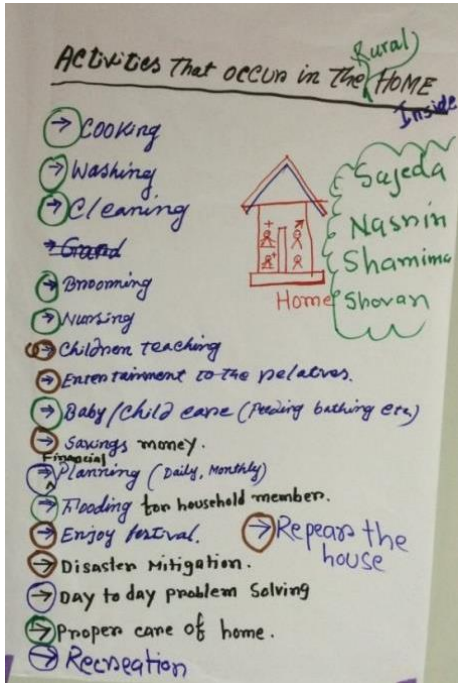 Activities That occur in The Rural HOME
Inside
→ Cooking
→ Washing
→ Cleaning
→ Grand
→ Brooming
→ Nursing
→ Children teaching
→ Entertainment to the relatives.
→ Baby/child care (Feeding bathing etc)
→ Savings money.
→ Financial Planning (Daily, Monthly)
→ Flooding for household member.
→ Enjoy festival.
→ Repears the
house
→ Disaster Mitigation.
→ Day to day problem Solving
→ Proper care of home.
→ Recreation
Home
Sajeda
Nasrin
Shamima
Shovan